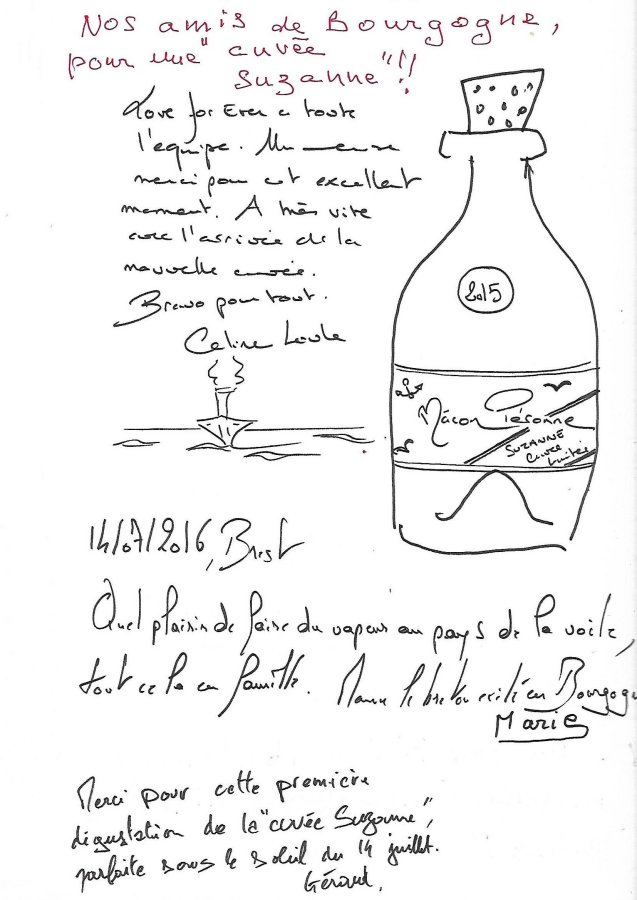 Nos amis de Bourgogne,
pour une "cuvée
Suzanne"!!
Love for Ever a toute
l'équipe. Un
merci pour cet excellent
moment. A très vite
avec l'arrivée de la
nouvelle cuvée.
Bravo pour tout.
Celine
2015
Mâcon Péronne
SUZANNE
Cuvée
limitée
14/07/2016, Brest
Quel plaisir de faire du vapeur au pays de la voile,
tout cela en famille. le breton exilé en Bourgogne
Marie
Merci pour cette première
dégustation de la "cuvée Suzanne",
parfaite sous le soleil du 14 juillet.